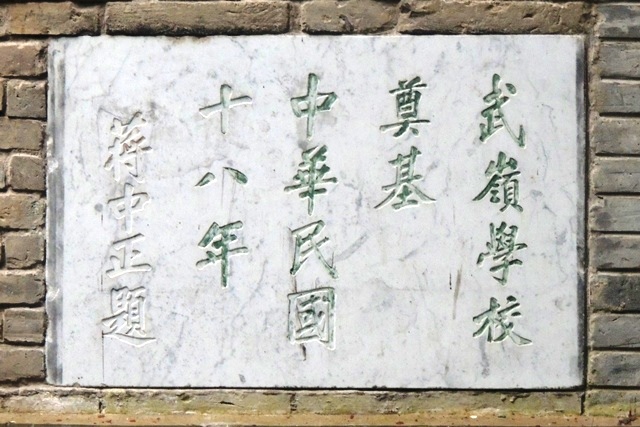 武嶺學校
奠基
中華民國
十八年
蔣中正題